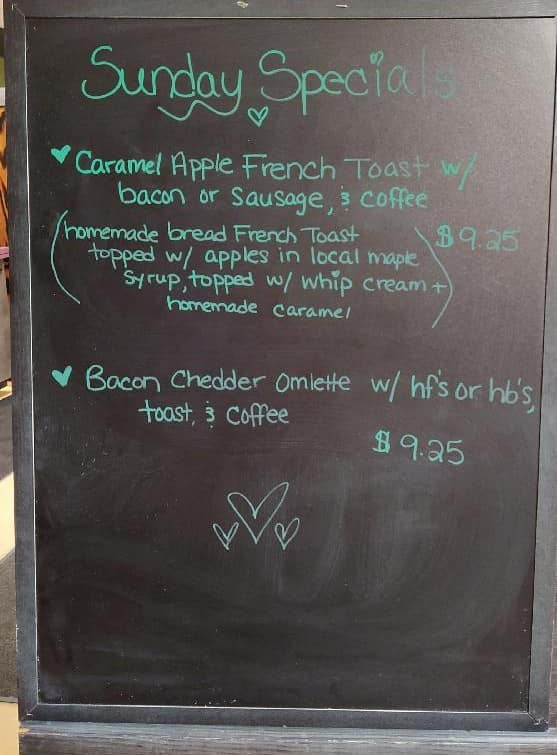 Sunday Specials
Caramel Apple French Toast w/
bacon or Sausage, & coffee
(homemade bread French Toast
$9.25
topped w/ apples in local maple
Syrup, topped w/ whip cream +
homemade caramel)
Bacon Chedder Omlette w/ hf's or hb's,
toast, & Coffee
$9.25